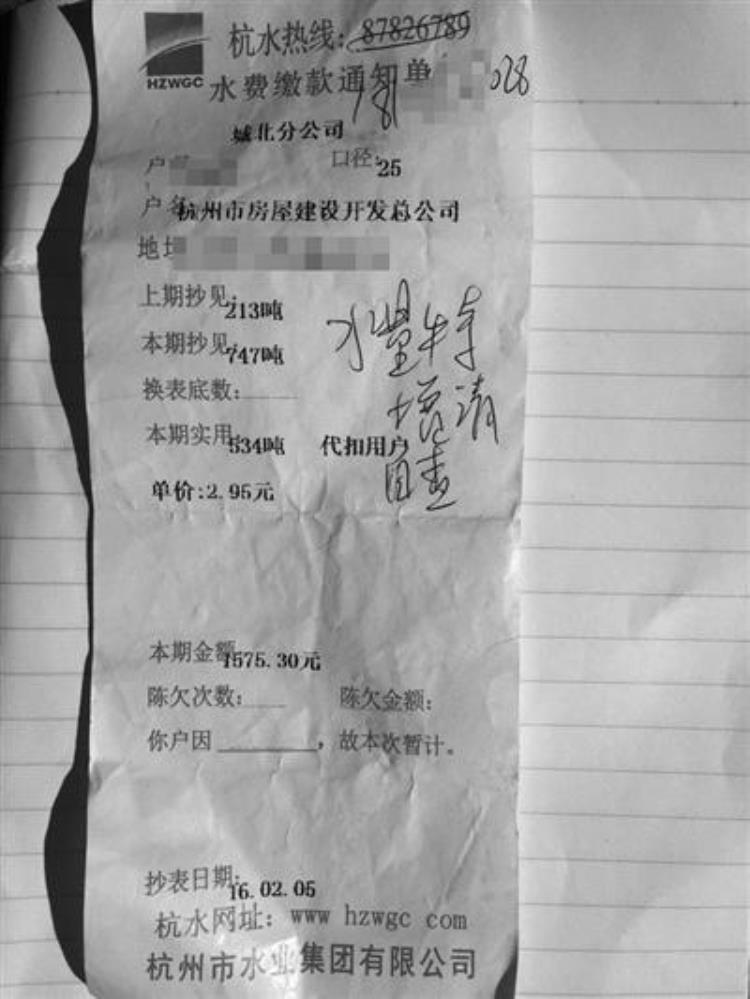 HZWGC
杭水热线:87826789
水费缴款通知单
181 028
城北分公司
户 口径:25
户名 杭州市房屋建设开发总公司
地址
上期抄见:213吨
本期抄见:747吨
水量特
换表底数:
增请
本期实用:534吨 代扣用户
自查
单价:2.95元
本期金额 1575.30元
陈欠次数: 陈欠金额:
你户因 ,故本次暂计。
抄表日期:16.02.05
杭水网址:www hzwgc com
杭州市水业集团有限公司